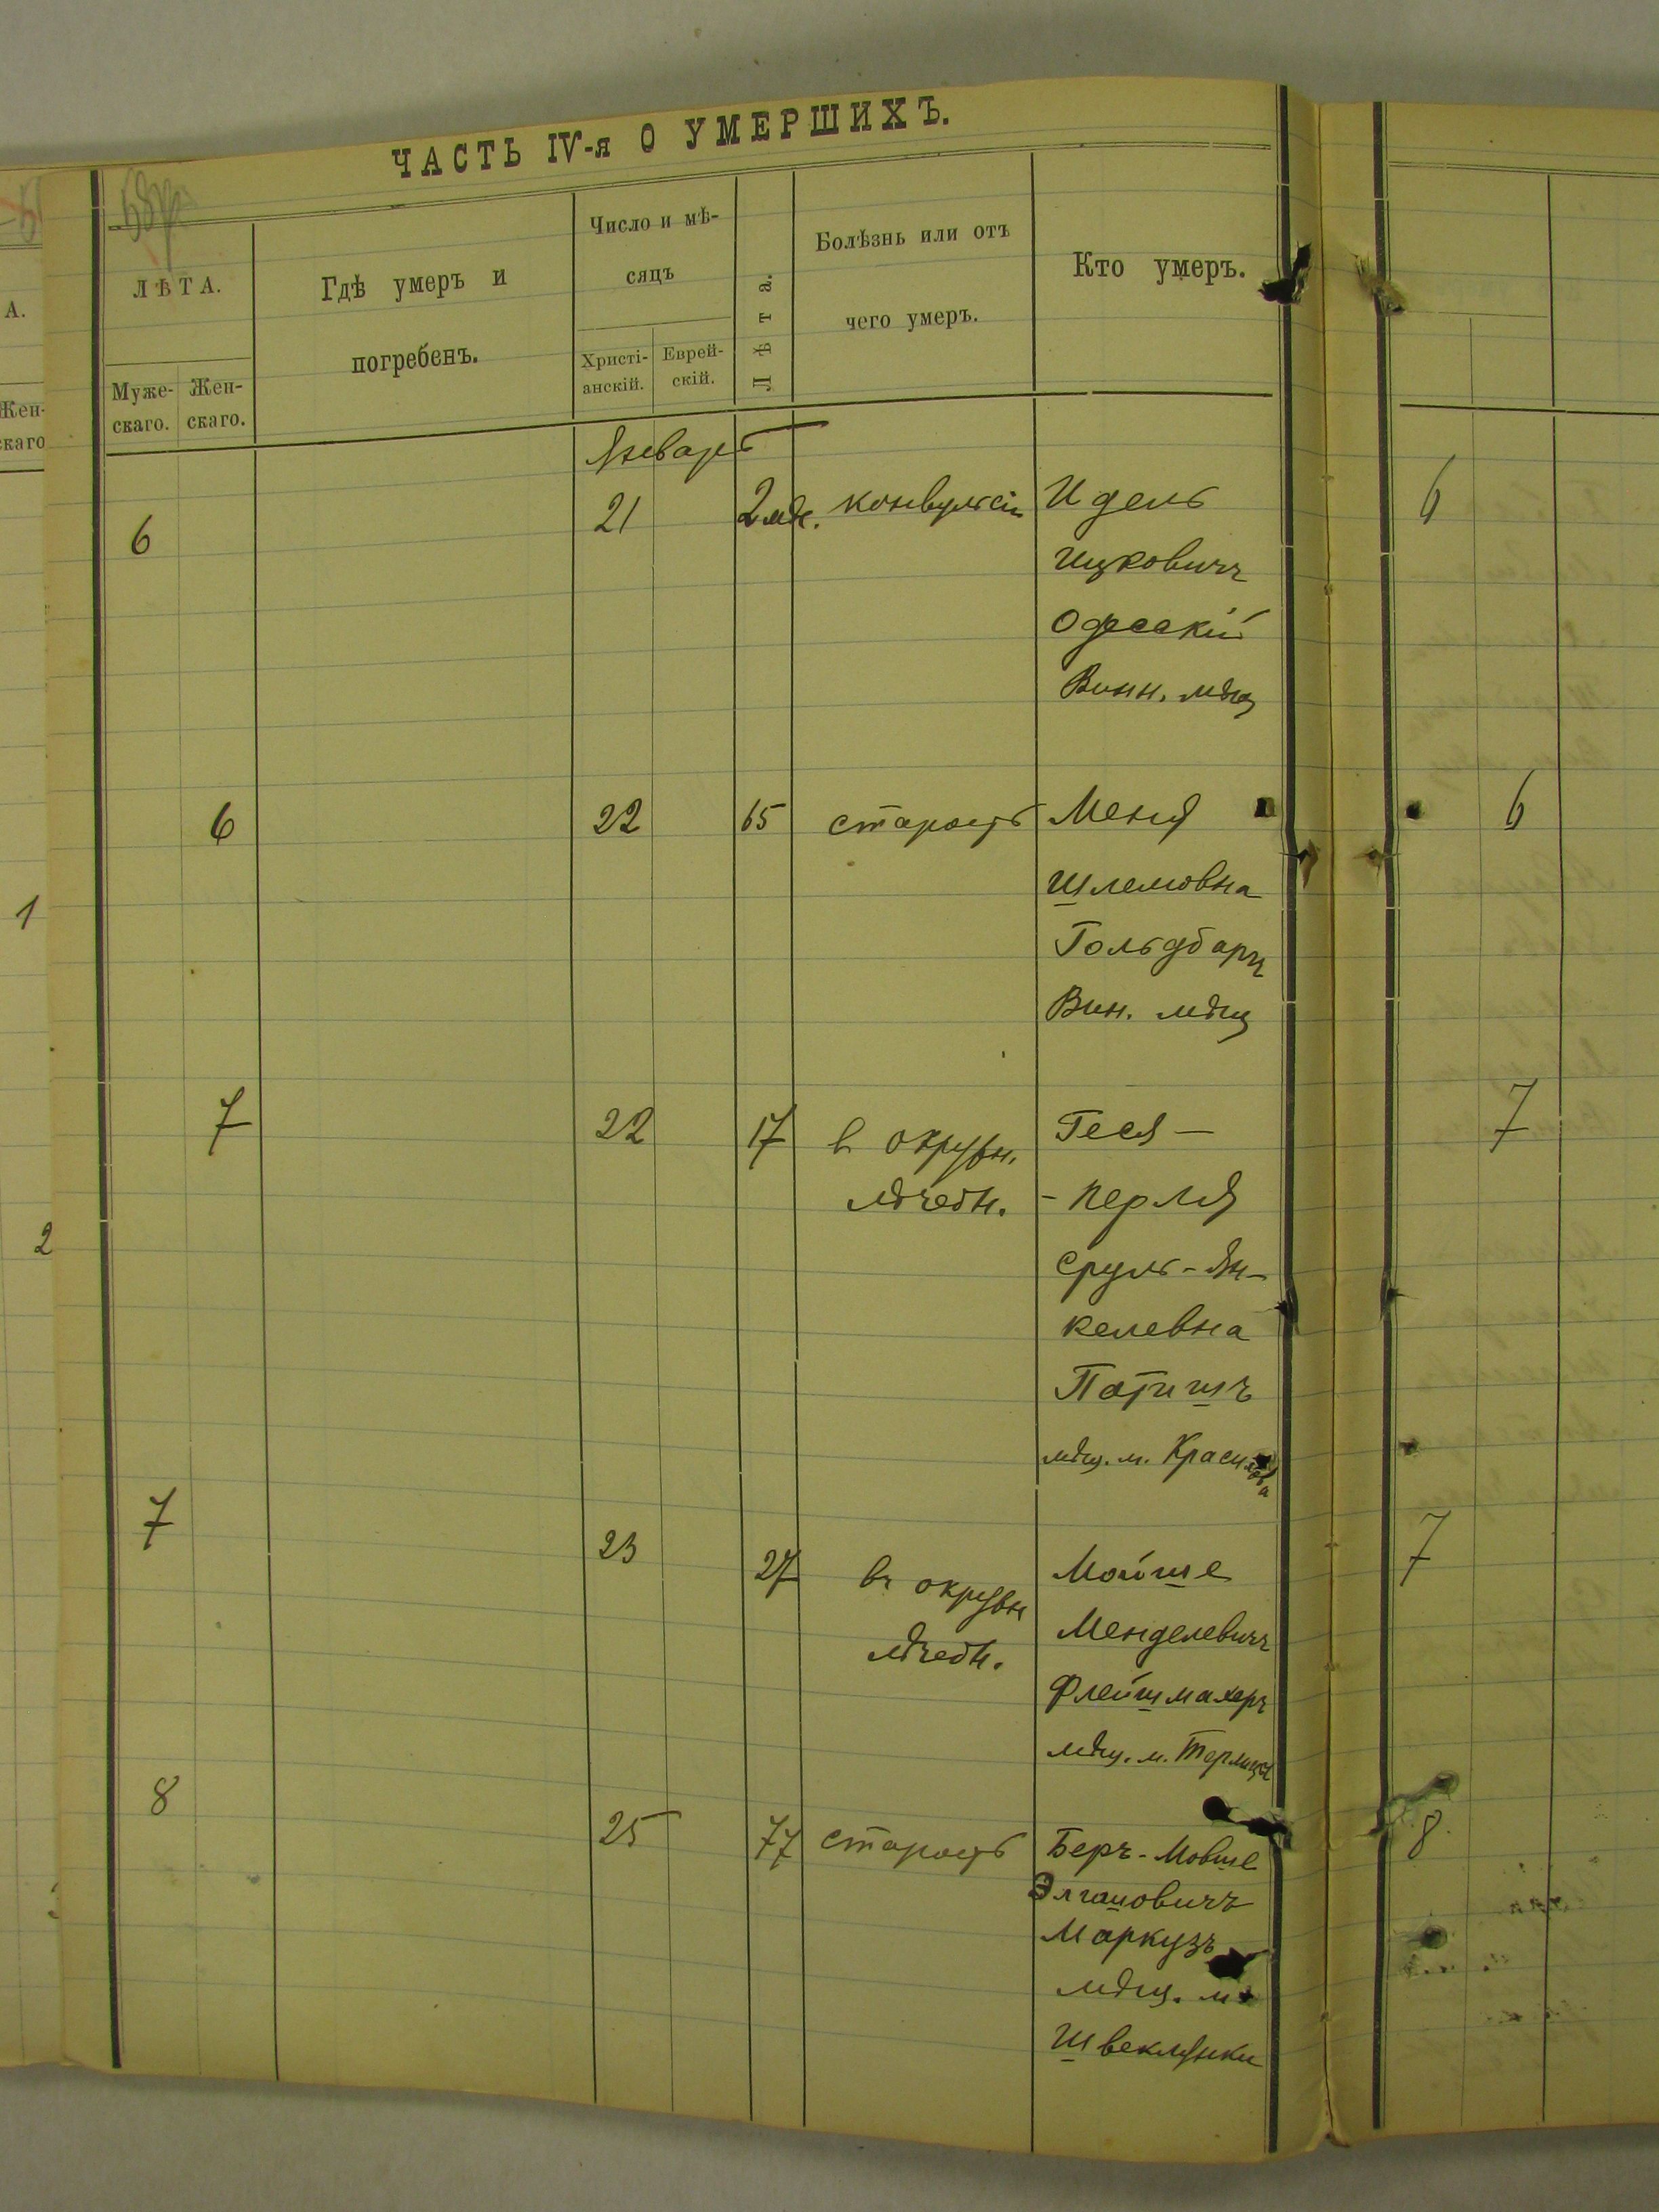 ЧАСТЬ IV-я О УМЕРШИХЪ.
ЛѢТА.
Муже-
скаго.
Жен-
скаго.
Гдѣ умеръ и
погребенъ.
Число и мѣ-
сяцъ
Христі-
анскій.
Еврей-
скій.
Лѣта.
Болѣзнь или отъ
чего умеръ.
Кто умеръ.
А.
Жен-
скаго
1
2
Январь
6 21 2 мѣс. конвульсіи Идель
Ицковичъ
Одесскій
Винн. мѣщ
6 22 65 старость Меня
Шлемовна
Гольдбаръ
Вин. мѣщ
7 22 17 в окружн. Геся-
лѣчебн. -перля
Сруль-Ян-
келевна
Патишъ
мѣщ. м. Красн
7 23 27 въ окружн Мойше
лѣчебн. Менделевичъ
Флейшмахеръ
мѣщ. м. Терлица
8 25 77 старость Беръ-Мовше
Элиовичъ
Маркузъ
мѣщ. м
Швеклунки
6
6
7
7
8